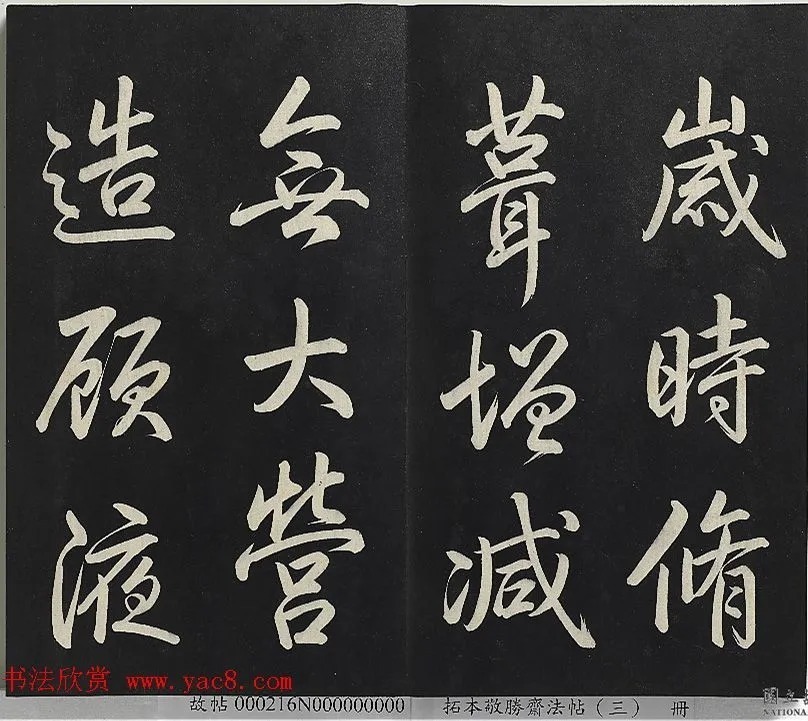 歲時脩
葺增減
無大營
造顧液
书法欣赏 www.yac8.com
故帖000216N000000000 拓本敬勝齋法帖(三) 冊
國立
NATIONA